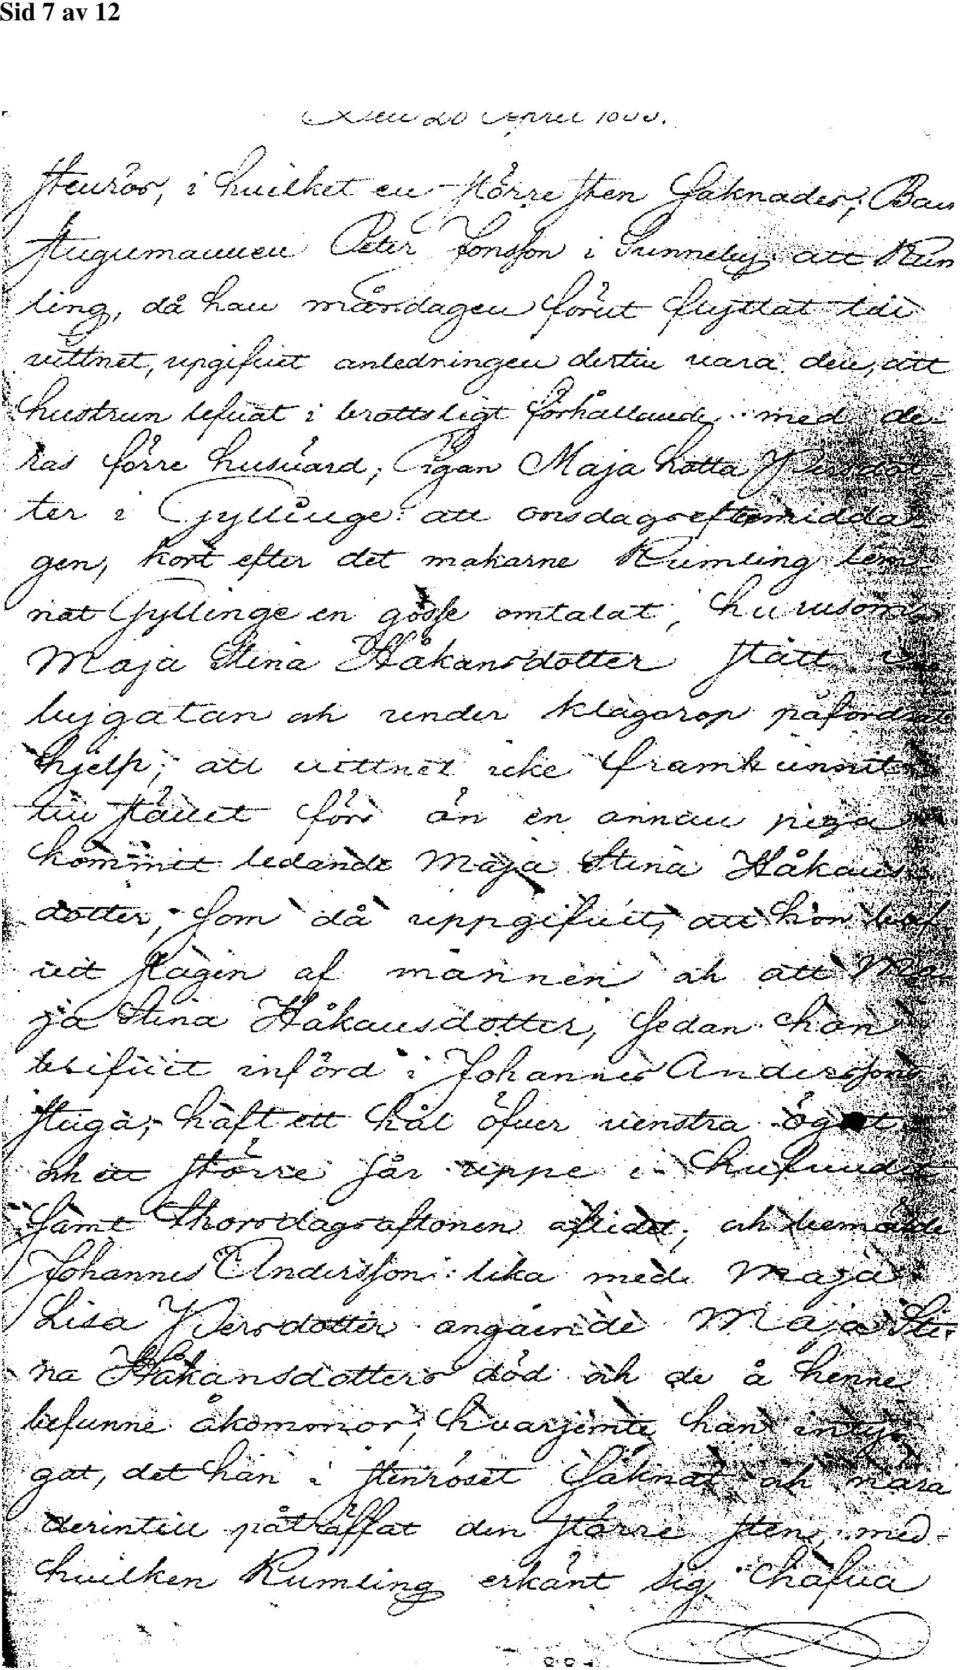 Sid 7 av 12
Den 20 April
stenrös, i hvilket en större sten saknades; Ban
stugumannen Peter Jonsson i Sunneby: att Rum
ling, då han måndagen förut flyttat till
vittnet, upgifvit anledningen dertill vara den, att
hustrun lefvat i brottsligt förhållande med de=
ras förre husvärd; Pigan Maja Lotta Persdot
ter i Gyllinge: att onsdagseftermidda
gen, kort efter det makarne Rumling lem
nat Gyllinge en gosse omtalat, huruson
Maja Stina Håkansdotter stått i
bygatan och under klagorop påfordrat
hjelp; att vittnet icke framkunnit
till stället förr än en annan piga
kommit ledande Maja Stina Håkans
dotter, som då uppgifvit, att hon blef
vit slagen af mannen och att Ma
ja Stina Håkansdotter, sedan hon
blifvit införd i Johannes Anderssons
stuga, haft ett hål öfver venstra ögat
och ett större sår uppe i hufvudet
samt thorsdagsaftonen aflidit; och bemälde
Johannes Andersson: lika med Maja
Lisa Persdotter angående Maja Sti=
na Håkansdotters död och de å henne
befunne åkommor, hvarjemte han inty
gat, det han i stenröset saknat och nära
derintill påträffat den större sten, med
hvilken Rumling erkänt sig hafva